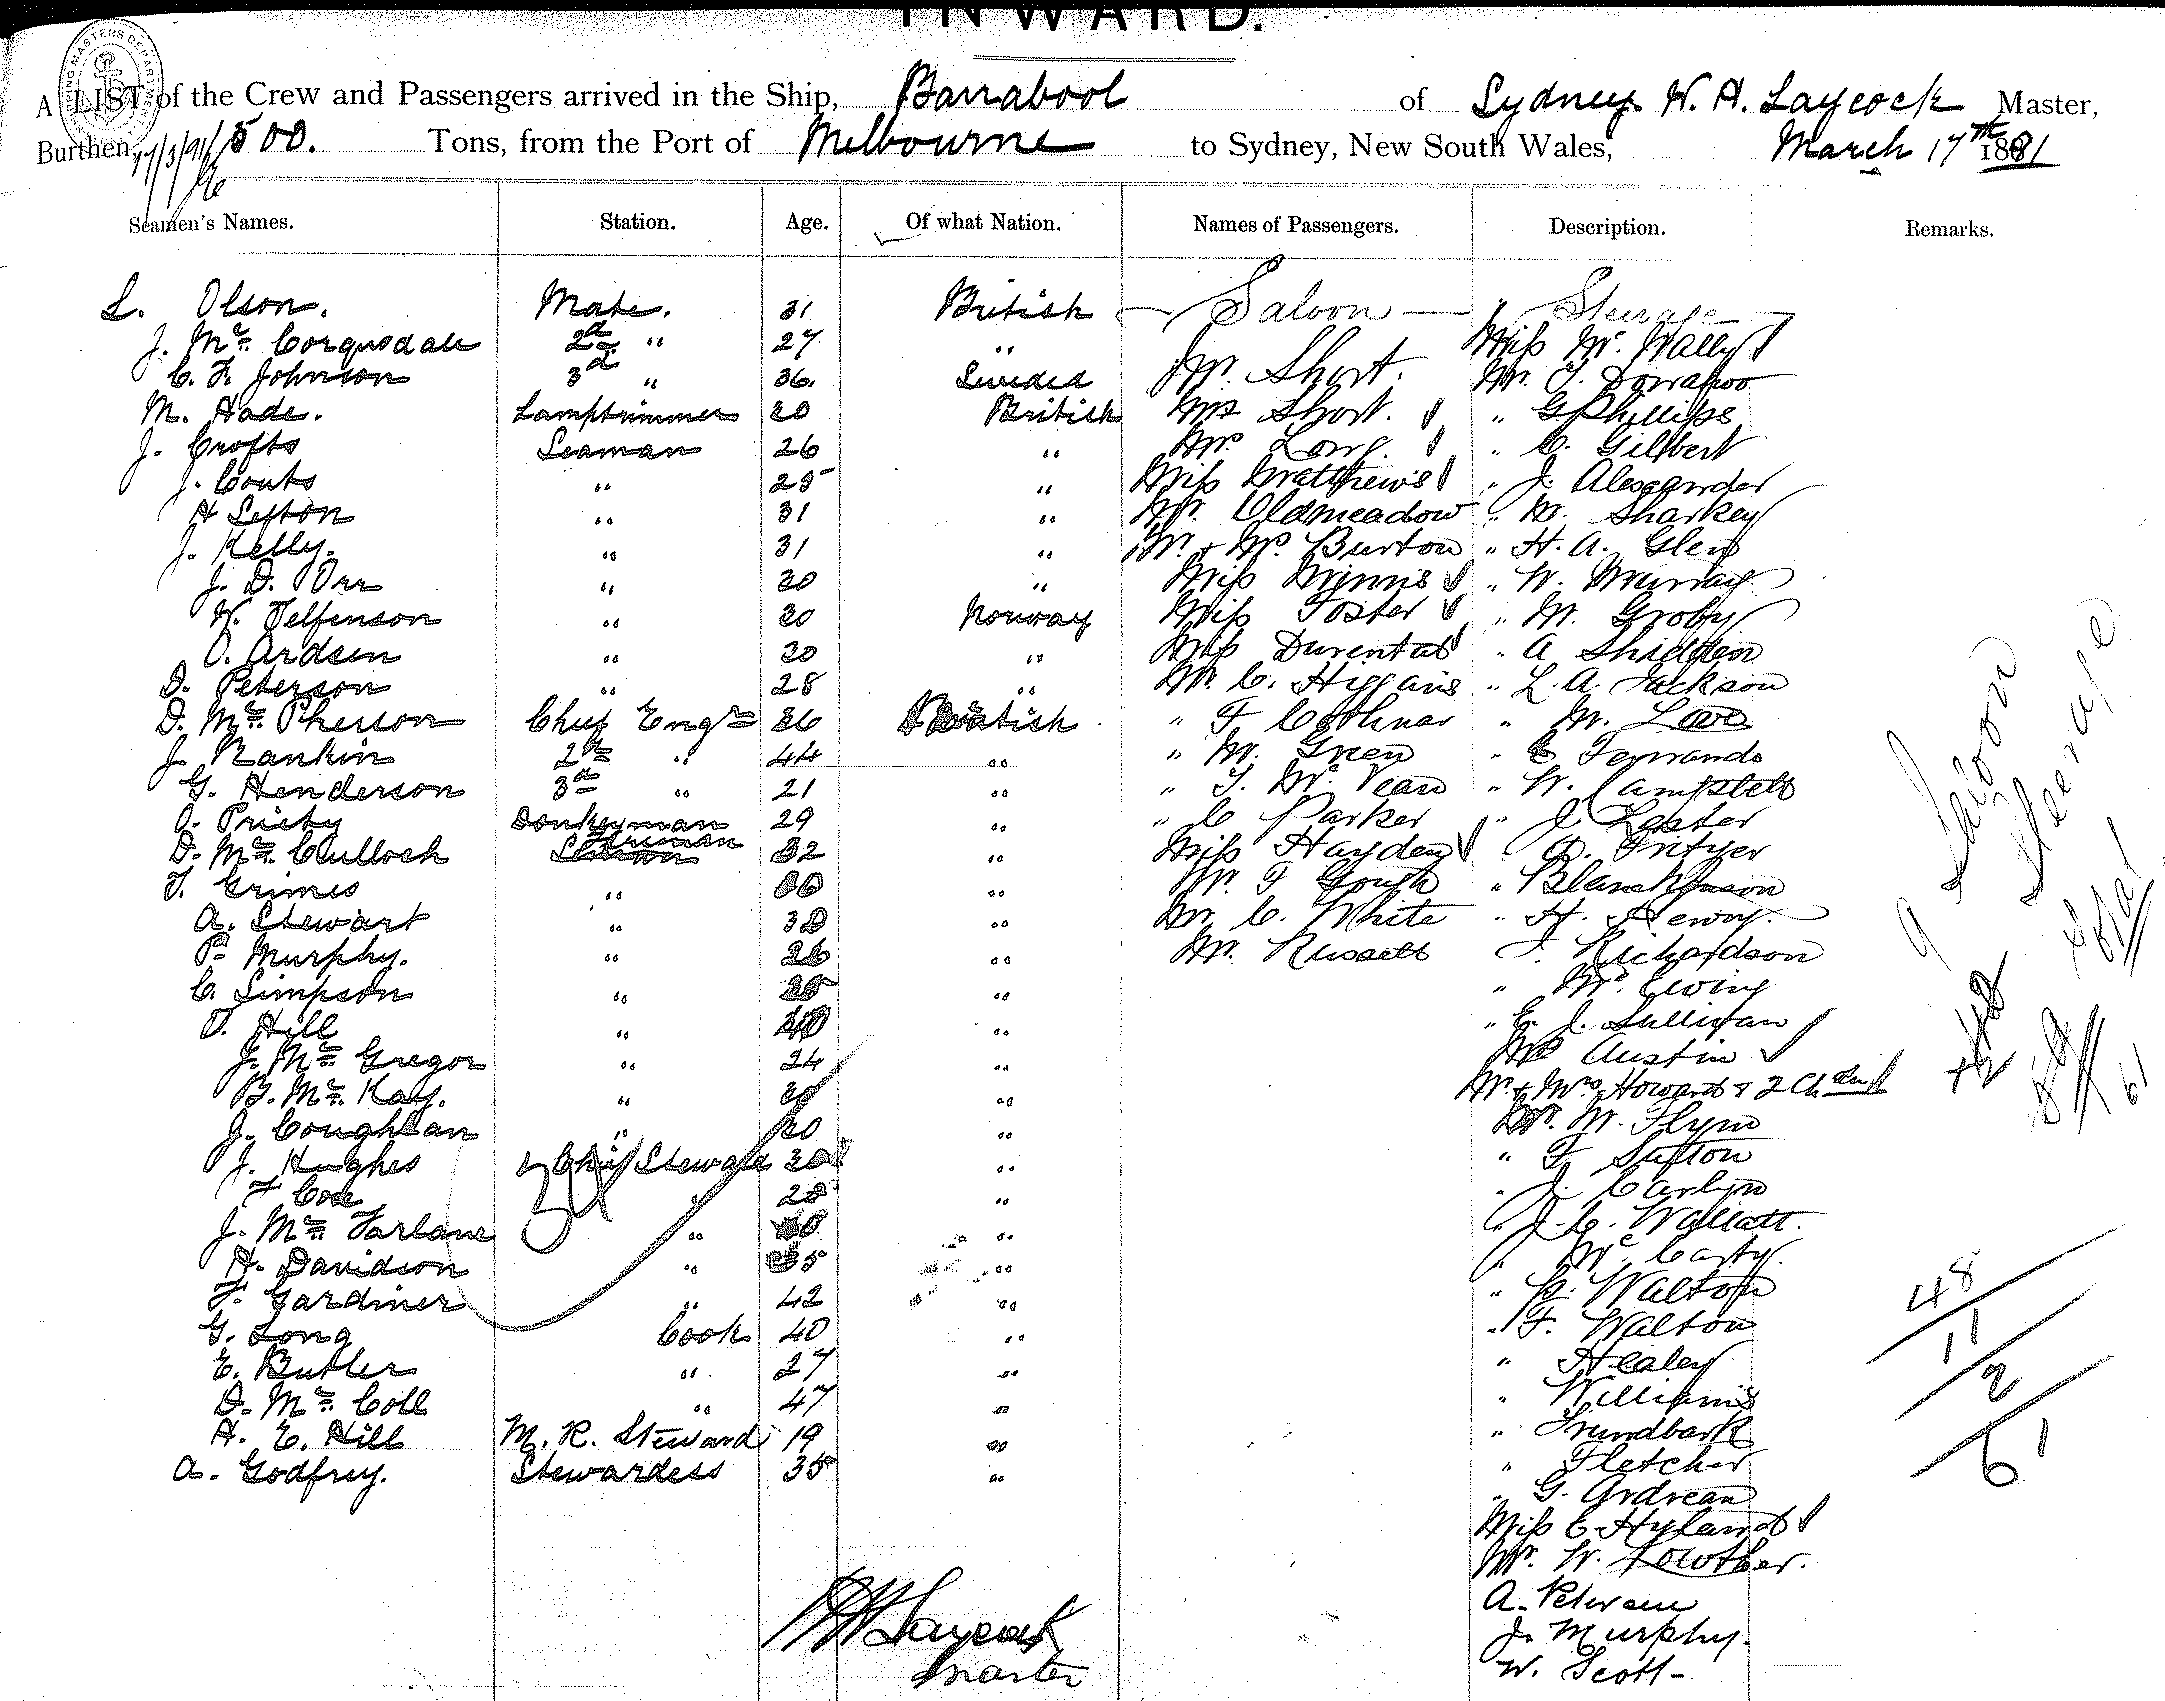 INWARD.
A LIST of the Crew and Passengers arrived in the Ship, Barrabool of Sydney W. H. Laycock Master,
Burthen, 500. Tons, from the Port of Melbourne to Sydney, New South Wales, March 17th 1891
17/3/91
Seamen's Names. Station. Age. Of what Nation. Names of Passengers. Description. Remarks.
L. Olson. Mate. 31 British — Saloon — Steerage
J. Mc Corquodale 2nd " 27 " Miss Mc Nally
C. F. Johnson 3rd " 36. Sweden Mr. Short. Mr. J. Donahoo
M. Hade. Lamptrimmer 20 British Mrs Short. " G Phillips
J. Crofts Seaman 26 " Mrs Long. " C. Gilbert
J. Couts " 25 " Miss Matthews " J. Alexander
H Sefton " 31 " Mr. Oldmeadow " M. Sharkey
J. Kelly. " 31 " Mr. & Mrs. Burton " H. A. Glen
J. D. Orr " 20 " Miss Minnis " W. Murray
W. Telfenson " 20 Norway Miss Foster " M. Groby
O. Ardsen " 20 " Miss Durental " A Shidden
D. Peterson " 28 " Mr. C. Higgins " L. A. Jackson
D. Mc Pherson Chief Engr 36 British " F " M. Love
J. Rankin 2nd " 44 " " M. Green " E Ferrando
G. Henderson 3rd " 21 " " J. Mc Vean " W. Campbell
O. Prisby Donkeyman 29 " " C Parker " J Lester
D. Mc Culloch Fireman 32 " Miss Hayden
T. Grimes " " Mr. F Gough " Blanchinson
A. Stewart " 30 " Mr. C. White " H.
P. Murphy. " 26 " Mr. Russell J. Richardson
C. Simpson " 25 " " Mc Ewing
T. Hill " 40 " " E. J. Sullivan
J. Mc Gregor " 24 " Mrs Austin
B. Mc Kay. " " Mr & Mrs Howard & 2 Children
J. Coughlan " 30 " Mr. M. Flynn
J. Hughes Chief Steward 30 " " F Sutton
F Cox " 28 " " J. Carlyn
J. Mc Farlane " " " J. C. Wallatt.
A. Davidson " 35 " " Mc Carty
F. Gardiner " 42 " " P. Walton
G. Long Cook 40 " " F. Walton
E. Butler " 27 " " Healey
D. Mc Coll " 47 " " Williams
H. E. Hill M. R. Steward 19 " " Trundbark
A. Godfrey. Stewardess 35 " " Fletcher
" G. Ardrean
Miss C Hyland
Mr. W. Lowther.
A. Petersen
J. Murphy.
W. Scott
W H Laycock
Master
9 Saloon
Steerage
61
48
11
2
61